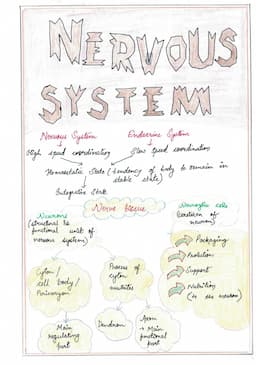 NERVOUS
SYSTEM
Nervous System
Endocrine System
High speed coordination
Slow speed coordination
Homeostatic State (tendency of body to remain in
stable state)
Integrative State
Nerve tissue
Neurons
(structural &
functional unit of
nervous system)
Neuroglia cells
(caretaker of
neuron)
Packaging
Protection
Support
Nutrition
(to the neuron)
Cyton /
cell body /
Perikaryon
Process of
cyton
neurites
Main
regulating
part
Dendron
Axon
→ Main
functional
part